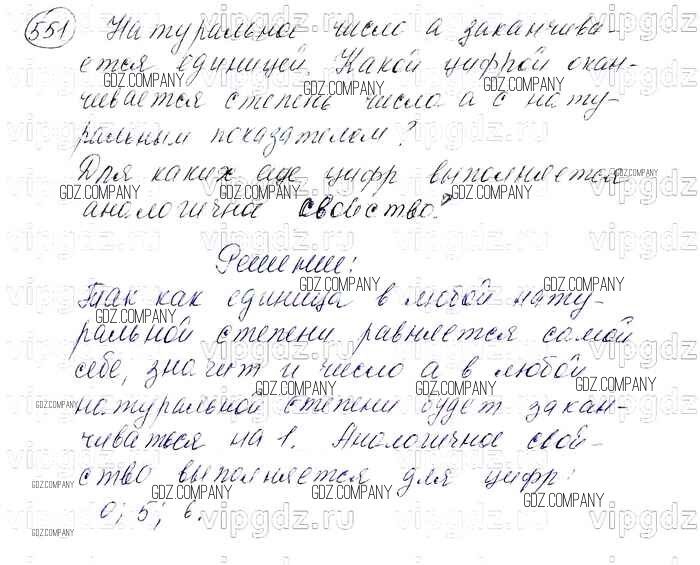 551 Натуральное число а заканчива-
ется единицей. Какой цифрой окан-
чивается степень числа а с нату-
ральным показателем?
Для каких еще цифр выполняется
аналогичное свойство?
Решение:
Так как единица в любой нату-
ральной степени равняется самой
себе, значит и число а в любой
натуральной степени будет закан-
чиваться на 1. Аналогичное свой-
ство выполняется для цифр:
0; 5; 6.